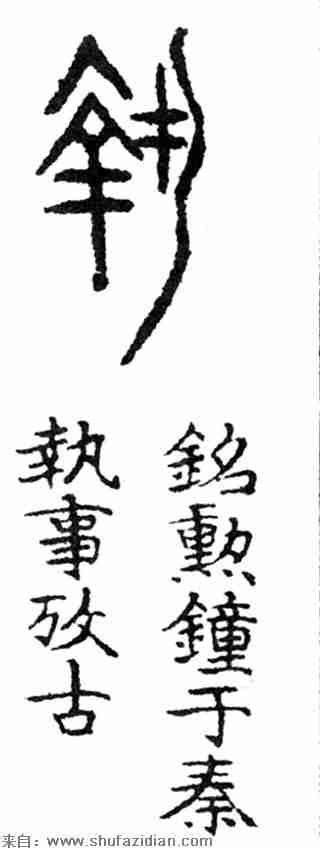 執
銘勲鐘于秦
執事攷古
来自：www.shufazidian.com